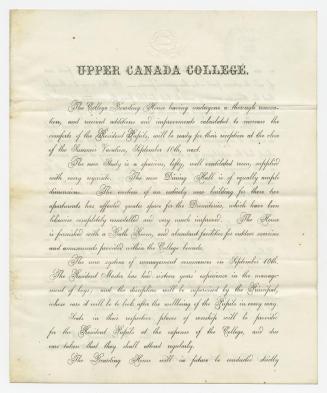 UPPER CANADA COLLEGE.
The College Boarding House having undergone a thorough renova-
tion, and received additions and improvements calculated to increase the
comforts of the Resident Pupils, will be ready for their reception at the close
of the Summer Vacation, September 10th, next.
The new Study is a spacious, lofty, well ventilated room, supplied
with every requisite. The new Dining Hall is of equally ample
dimensions. The erection of an entirely new building for these two
apartments has afforded greater space for the Dormitories, which have been
likewise completely remodelled and very much improved. The House
is furnished with a Bath Room, and abundant facilities for outdoor exercise
and amusements provided within the College bounds.
The new system of management commences on September 10th.
The Resident Master has had sixteen years experience in the manage-
ment of boys; and the discipline will be supervised by the Principal,
whose care it will be to look after the wellbeing of the Pupils in every way.
Seats in their respective places of worship will be provided
for the Resident Pupils at the expense of the College, and due
care taken that they shall attend regularly.
The Boarding House will in future be conducted directly